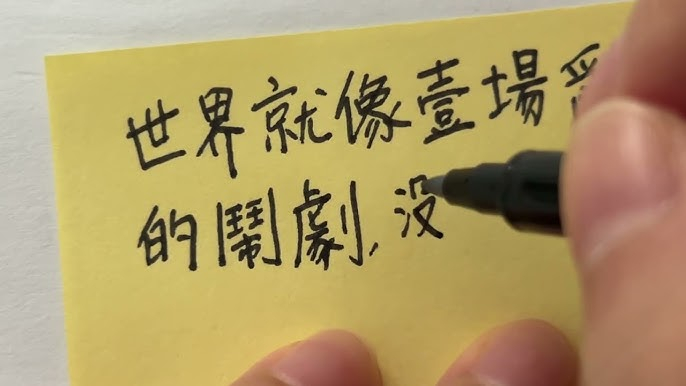 世界就像壹場
的鬧劇,没